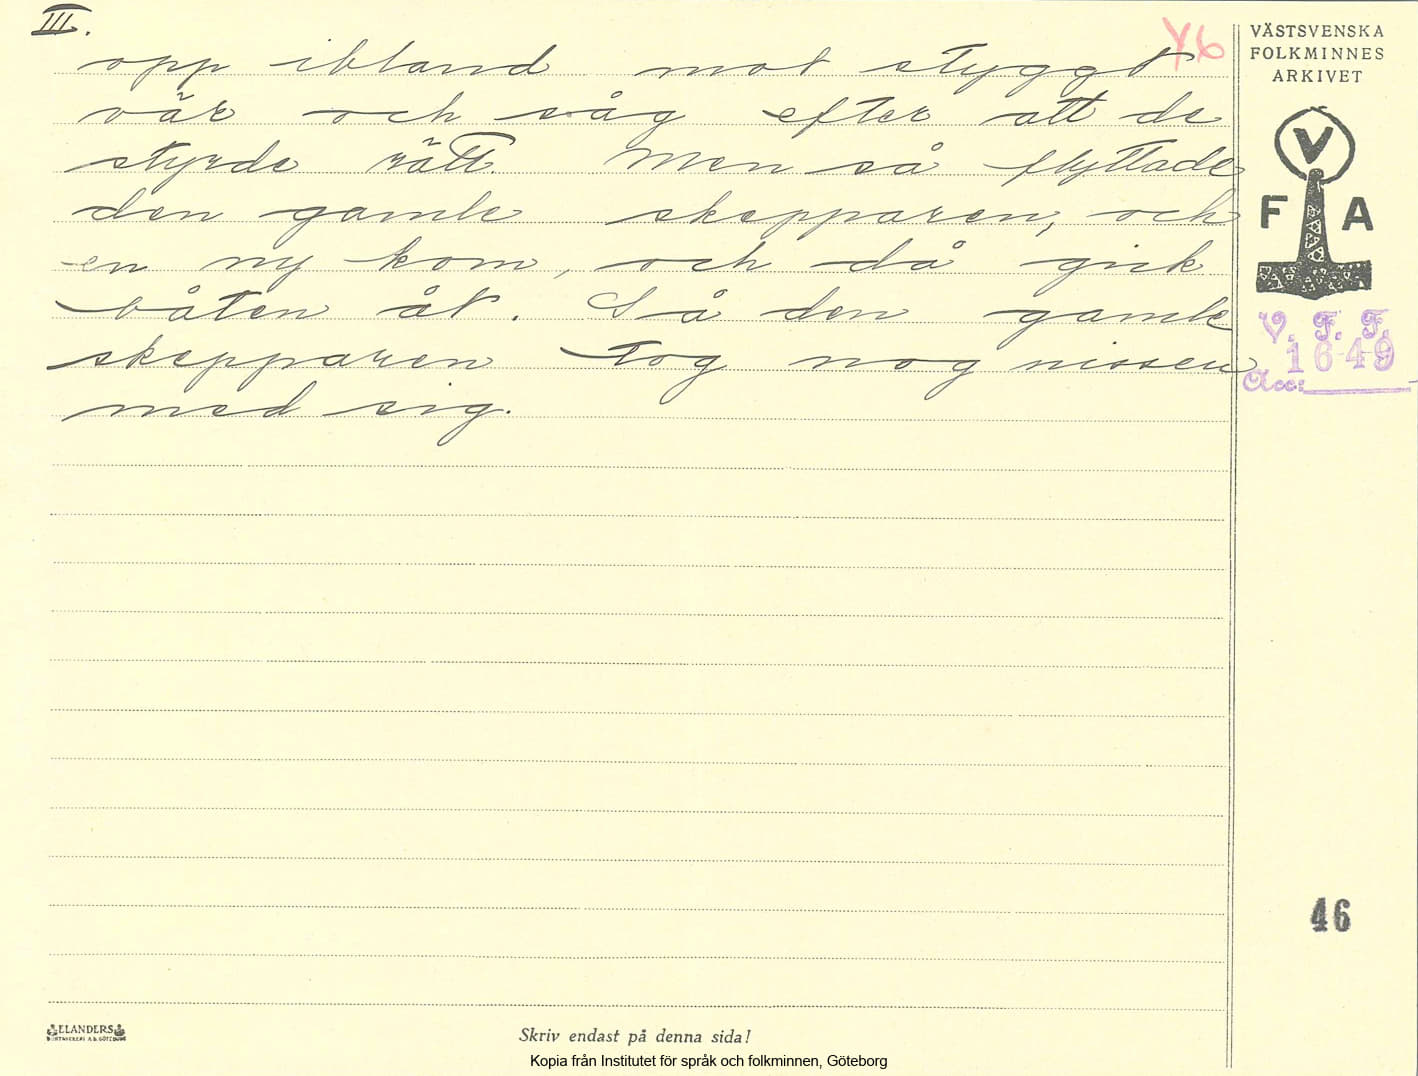 III.
46
opp ibland mot styggt
vär och såg efter att de
styrde rätt. Men så flyttade
den gamle skepparen, och
en ny kom, och då gick
båten åt. Så den gamle
skepparen tog nog nissen
med sig.
VÄSTSVENSKA
FOLKMINNES
ARKIVET
V
F A
V. F. F.
1649
Acc:
46
ELANDERS
Skriv endast på denna sida!
Kopia från Institutet för språk och folkminnen, Göteborg